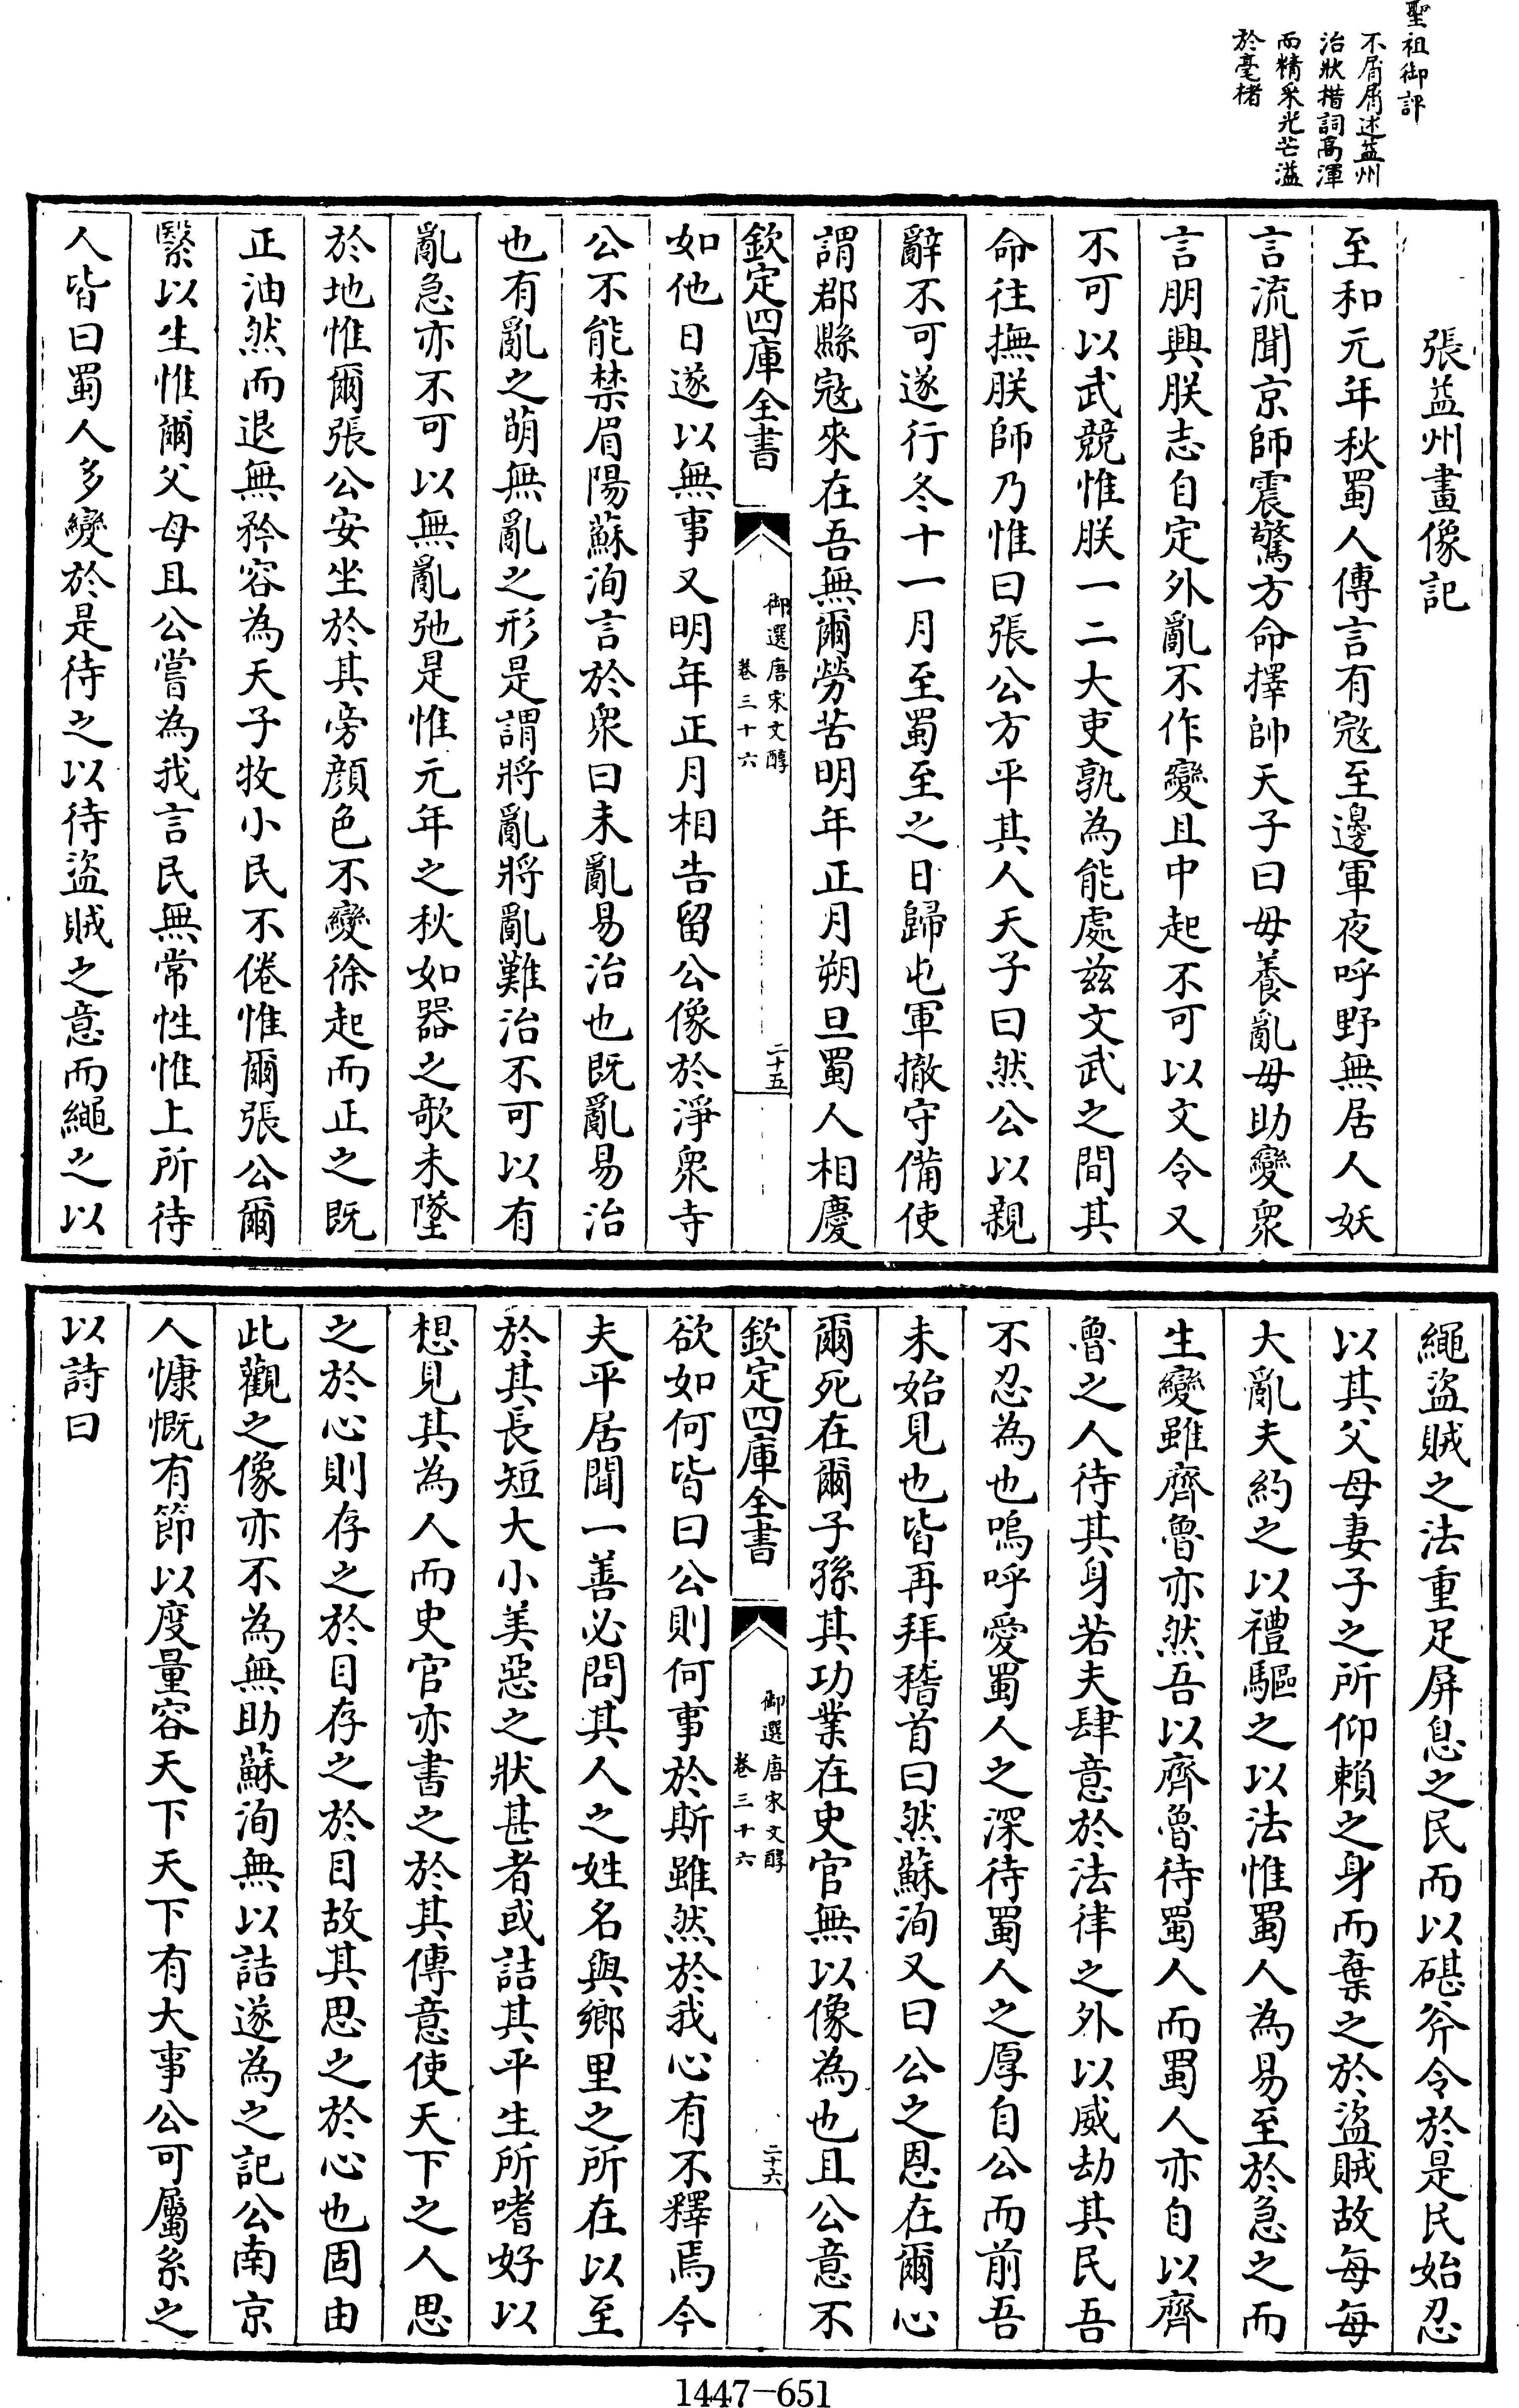 聖祖御評
不屑屑述益州
治狀措詞高渾
而精采光芒溢
於毫楮
張益州畫像記
至和元年秋蜀人傳言有宼至邊軍夜呼野無居人妖
言流聞京師震驚方命擇帥天子曰毋養亂毋助變衆
言朋興朕志自定外亂不作變且中起不可以文令又
不可以武競惟朕一二大吏孰為能處兹文武之間其
命往撫朕師乃惟曰張公方平其人天子曰然公以親
辭不可遂行冬十一月至蜀至之日歸屯軍撤守備使
謂郡縣宼來在吾無爾勞苦明年正月朔旦蜀人相慶
欽定四庫全書
御選唐宋文醇
卷三十六
二十五
如他日遂以無事又明年正月相告留公像於淨衆寺
公不能禁眉陽蘇洵言於衆曰未亂易治也既亂易治
也有亂之萌無亂之形是謂將亂將亂難治不可以有
亂急亦不可以無亂弛是惟元年之秋如器之欹未墜
於地惟爾張公安坐於其旁顔色不變徐起而正之既
正油然而退無矜容為天子牧小民不倦惟爾張公爾
繄以生惟爾父母且公嘗為我言民無常性惟上所待
人皆曰蜀人多變於是待之以待盜賊之意而繩之以
繩盜賊之法重足屏息之民而以碪斧令於是民始忍
以其父母妻子之所仰賴之身而棄之於盜賊故每每
大亂夫約之以禮驅之以法惟蜀人為易至於急之而
生變雖齊魯亦然吾以齊魯待蜀人而蜀人亦自以齊
魯之人待其身若夫肆意於法律之外以威劫其民吾
不忍為也嗚呼愛蜀人之深待蜀人之厚自公而前吾
未始見也皆再拜稽首曰然蘇洵又曰公之恩在爾心
爾死在爾子孫其功業在史官無以像為也且公意不
欽定四庫全書
御選唐宋文醇
卷三十六
二十六
欲如何皆曰公則何事於斯雖然於我心有不釋焉今
夫平居聞一善必問其人之姓名與鄉里之所在以至
於其長短大小美惡之狀甚者或詰其平生所嗜好以
想見其為人而史官亦書之於其傳意使天下之人思
之於心則存之於目存之於目故其思之於心也固由
此觀之像亦不為無助蘇洵無以詰遂為之記公南京
人慷慨有節以度量容天下天下有大事公可屬系之
以詩曰
1447-651